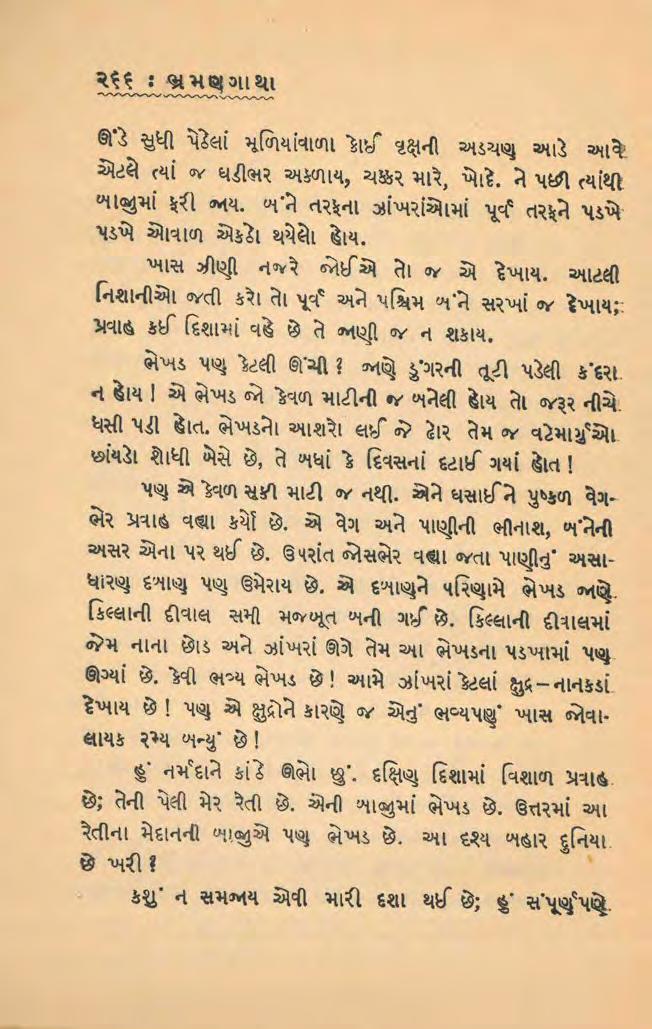 ૨૬૬ : ભ્રમણગાથા
ઊંડે સુધી પેઠેલાં મૂળિયાંવાળા કોઈ વૃક્ષની અડચણ આડે આવે
એટલે ત્યાં જ ઘડીભર અકળાય, ચક્કર મારે, ખોદે. ને પછી ત્યાંથી
બાજુમાં ફરી જાય. બંને તરફના ઝાંખરાંઓમાં પૂર્વ તરફને પડખે
પડખે ઓવાળ એકઠો થયેલો હોય.
ખાસ ઝીણી નજરે જોઈએ તો જ એ દેખાય. આટલી
નિશાનીઓ જતી કરો તો પૂર્વ અને પશ્ચિમ બંને સરખાં જ દેખાય;
પ્રવાહ કઈ દિશામાં વહે છે તે જાણી જ ન શકાય.
ભેખડ પણ કેટલી ઊંચી ? જાણે ડુંગરની તૂટી પડેલી કંદરા
ન હોય ! એ ભેખડ જો કેવળ માટીની જ બનેલી હોય તો જરૂર નીચે
ધસી પડી હોત. ભેખડનો આશરો લઈ જે ઢોર તેમ જ વટેમાર્ગુઓ
છાંયડો શોધી બેસે છે, તે બધાં કે દિવસનાં દટાઈ ગયાં હોત !
પણ એ કેવળ સૂકી માટી જ નથી. એને ઘસાઈને પુષ્કળ વેગ-
ભેર પ્રવાહ વહ્યા કર્યો છે. એ વેગ અને પાણીની ભીનાશ, બંનેની
અસર એના પર થઈ છે. ઉપરાંત જોસભેર વહ્યા જતા પાણીનું અસા-
ધારણ દબાણ પણ ઉમેરાય છે. એ દબાણને પરિણામે ભેખડ જાણે
કિલ્લાની દીવાલ સમી મજબૂત બની ગઈ છે. કિલ્લાની દીવાલમાં
જેમ નાના છોડ અને ઝાંખરાં ઊગે તેમ આ ભેખડના પડખામાં પણ
ઊગ્યાં છે. કેવી ભવ્ય ભેખડ છે ! આમે ઝાંખરાં કેટલાં ક્ષુદ્ર – નાનકડાં
દેખાય છે ! પણ એ ક્ષુદ્રોને કારણે જ એનું ભવ્યપણું ખાસ જોવા-
લાયક રમ્ય બન્યું છે !
હું નર્મદાને કાંઠે ઊભો છું. દક્ષિણ દિશામાં વિશાળ પ્રવાહ
છે; તેની પેલી મેર રેતી છે. એની બાજુમાં ભેખડ છે. ઉત્તરમાં આ
રેતીના મેદાનની બાજુએ પણ ભેખડ છે. આ દશ્ય બહાર દુનિયા
છે ખરી ?
કશું ન સમજાય એવી મારી દશા થઈ છે; હું સંપૂર્ણપણે